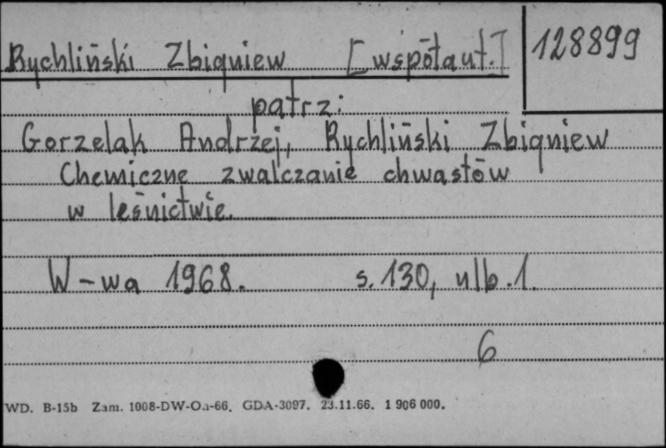 Rychliński Zbigniew [współaut.] 128899
patrz:
Gorzelak Andrzej, Rychliński Zbigniew
Chemiczne zwalczanie chwastów
w leśnictwie.
W-wa 1968. s. 130, nlb. 1.
6
WD. B-15b Zam. 1008-DW-Oa-66. GDA-3097. 23.11.66. 1 906 000.